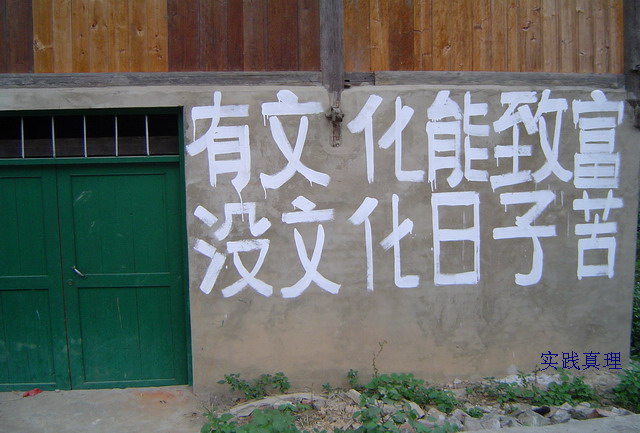 有文化能致富
没文化日子苦
实践真理